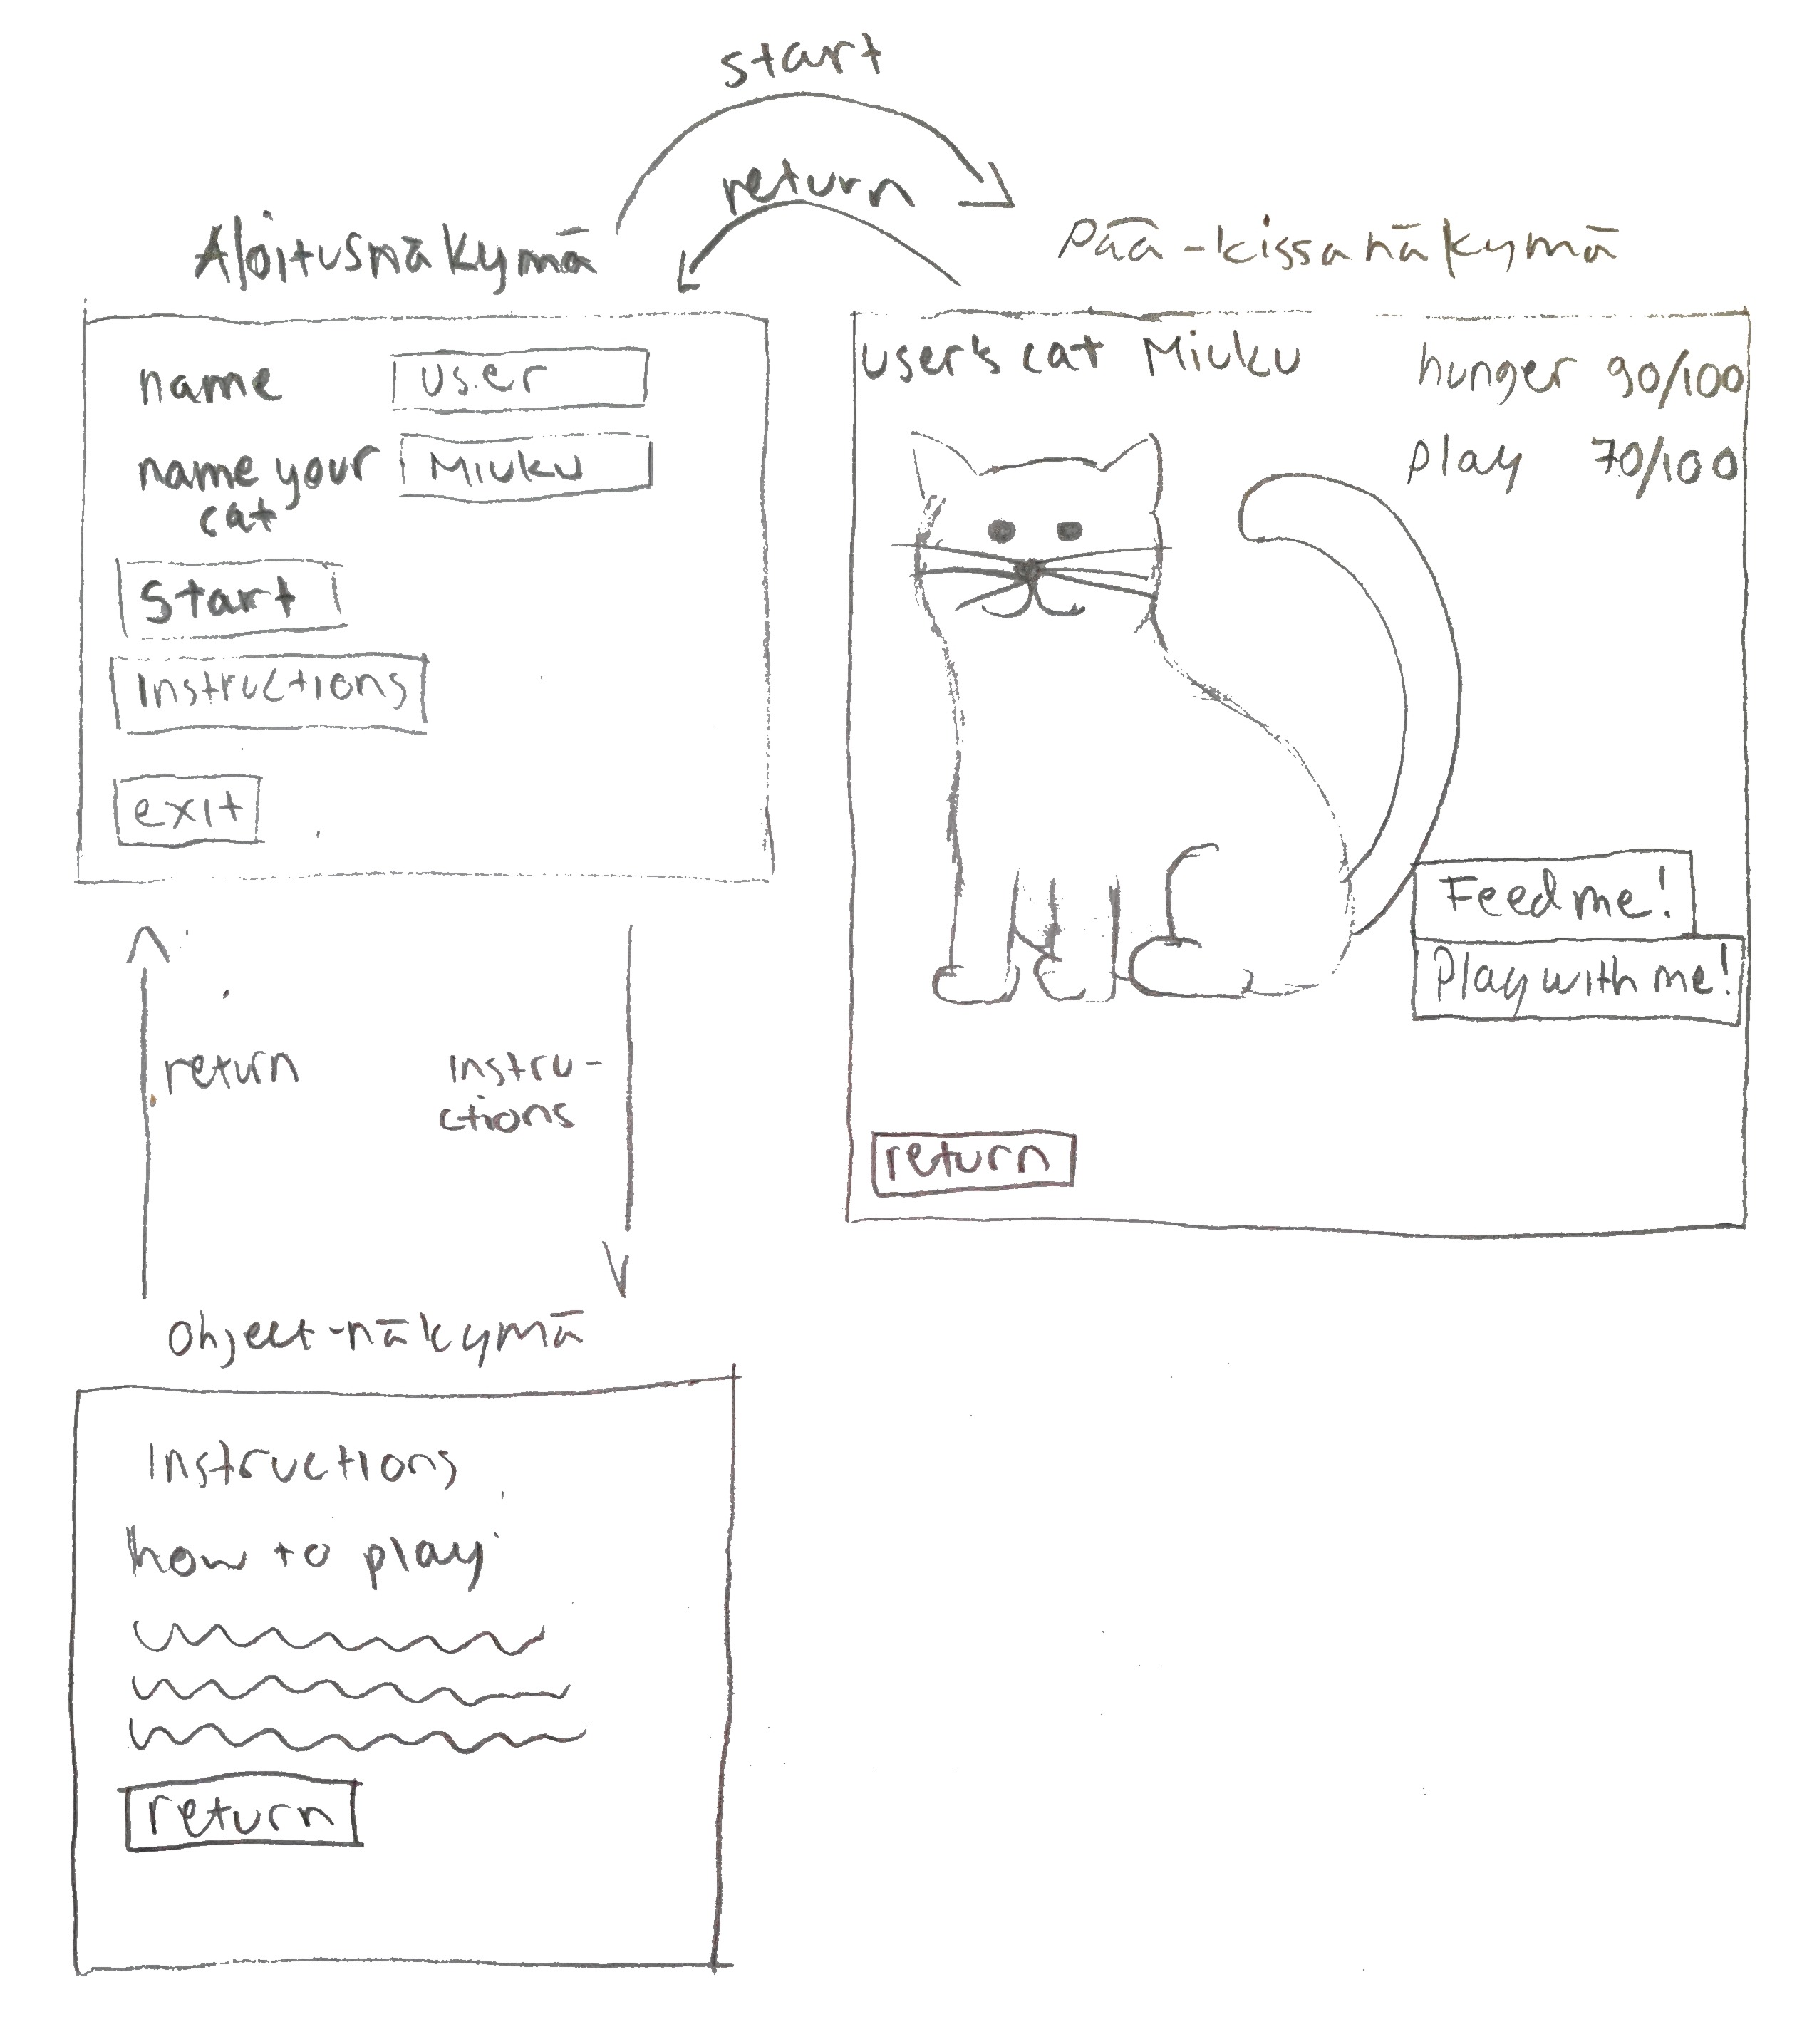 start
return
Aloitusnäkymä
name user
name your Miuku
cat
Start
Instructions
exit
Pää-kissanäkymä
user's cat Miuku hunger 90/100
play 70/100
Feed me!
Play with me!
return
return
Instru-
ctions
Ohject-näkymä
Instructions
how to play
return